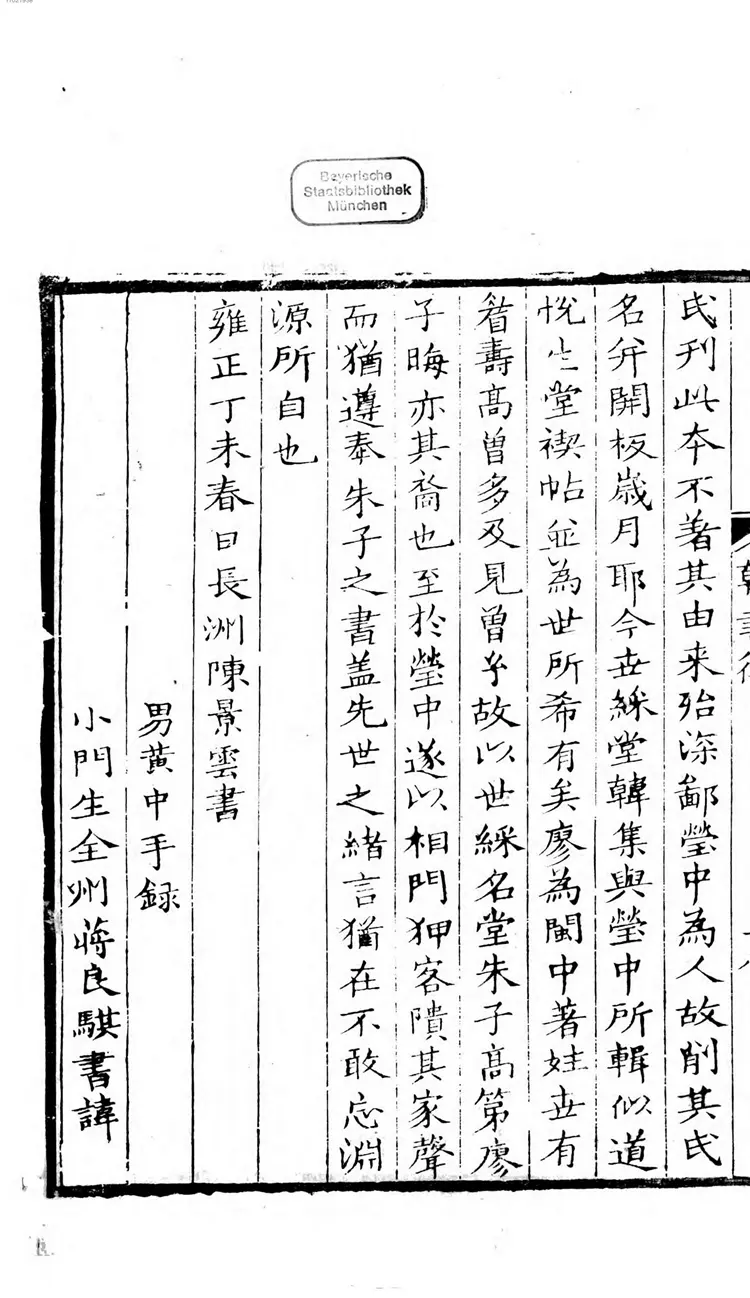 11021938
Bayerische
Staatsbibliothek
München
氏刊此本不著其由来殆深鄙瑩中為人故削其氏
名并開板歲月耶今世綵堂韓集與瑩中所輯似道
悅生堂禊帖並為世所希有矣廖為閩中著姓世有
耆壽高曾多及見曾子故以世綵名堂朱子高第廖
子晦亦其裔也至於瑩中遂以相門狎客隤其家聲
而猶遵奉朱子之書盖先世之緒言猶在不敢忘淵
源所自也
雍正丁未春日長洲陳景雲書
男黃中手録
小門生全州蔣良騏書諱